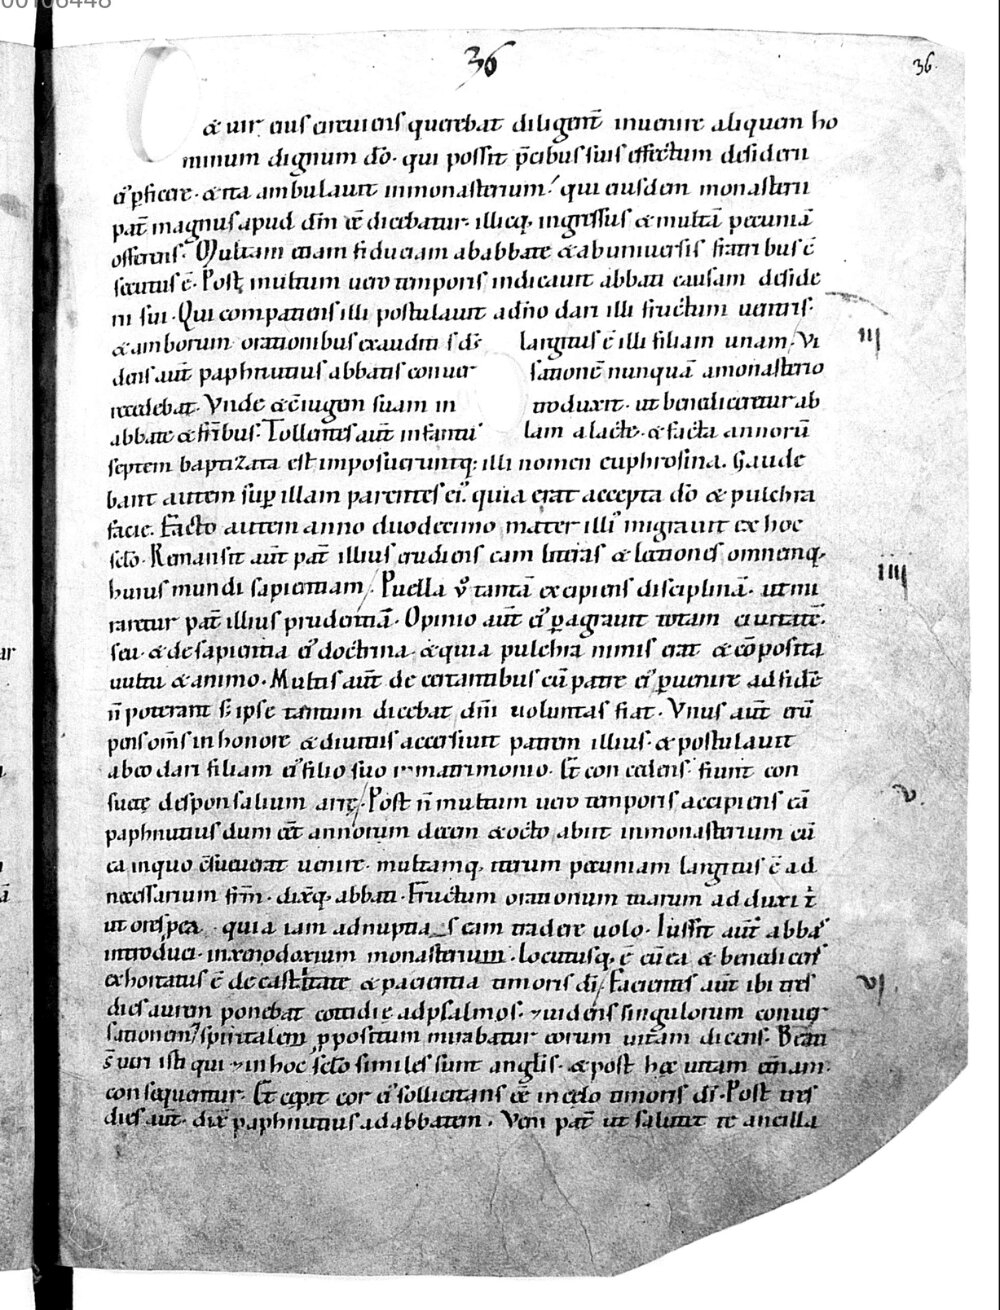 00106448
36
36
& uir eius circuiens querebat diligent̄ inuenire aliquem ho
minum dignum dō· qui possit p̄cibus suis effectum desiderii
ei᾽ p̱ficere· & ita ambulauit inmonasterium᾽ qui eiusdem monasterii
pat̄ magnus apud dm̄ eē dicebatur· illicq; ingressus & multā pecuniā
offerens· Multam etiam fiduciam ababbate & abuniuersis fratribus ē
secutus ē· Post multum uero temporis indicauit abbati causam deside
rii sui· Qui compatiens illi postulauit adn̄o dari illi fructum uentris·
& amborum orationibus exauditis d̄s largitus ē illi filiam unam· Vi
dens aut̄ paphnutius abbatis conuer sationē nunquā amonasterio
recedebat· Vnde & c̄iugem suam in troduxit· ut benediceretur ab
abbate & fr̄ibus· Tollentes aut̄ infantu lam a lacte· & facta annorū
septem baptizata est imposueruntq; illi nomen euphrosina. Gaude
bant autem sup̱ illam parentes ei᾽ quia erat accepta dō & pulchra
facie. Facto autem anno duodecimo mater illi᾽ migrauit ex hoc
sc̄lo· Remansit aut̄ pat̄ illius erudiens eam litteras & lectiones omnemq;
huius mundi sapientiam· Puella v̊ tantā excipiens disciplinā· ut mi
raretur pat̄ illius prudentiā· Opinio aut̄ ei᾽ p̱agrauit totam ciuitatē·
seu· & de sapientia ei᾽ doctrina· & quia pulchra nimis erat & cōposita
uultu & animo· Multis aut̄ de certantibus cū patre ei᾽ p̱uenire ad fidē
n̄ poterant s; ipse tantum dicebat dn̄i uoluntas fiat· Vnus aut̄ erū
pens om̄s in honore & diuitiis accersiuit patrem illius· & postulauit
abeo dari filiam ei᾽ filio suo in matrimonio· Et con cedens· fiunt con
suetę desponsalium artę· Post n̄ multum uero temporis accipiens eā
paphnutius dum eēt annorum decem & octo abiit inmonasterium cū
ea inquo c̄sueuerat uenire· multamq; iterum pecuniam largitus ē ad
necessarium frm̄· dixq; abbati· Fructum orationum tuarum adduxi t̄
ut ores p ea· quia iam adnuptias eam tradere uolo· Iussit aut̄ abbas
introduci· inxenodoxium monasterium· Locutusq; ē cū ea & benedicens
exhortatus ē de castitate & pacientia timoris di· Facientes aut̄ ibi tres
dies aurem ponebat cottidie adpsalmos· & uidens singulorum conuer
sationem spiritalem p̱positum mirabatur eorum uitam dicens· Beati
s̄ uiri isti qui & in hoc sc̄lo similes sunt anglis· & post hęc uitam etn̄am·
consequentur· Et cepit cor ei᾽ sollicitans eē in celo timoris di· Post tres
dies aut̄· dix̄ paphnutius adabbatem· Veni pat̄ ut salutet te ancilla
III
IIII
V·
VI